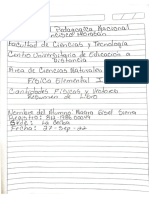 Pedagogica Nacional
Francisco Morazán
Facultad de Ciencias y Tecnología
Centro Universitario de Educacion a
Distancia
Area de Ciencias Naturales
Física Elemental I
Cantidades Físicas y Vectores
Resumen de Libro
Nombre del Alumno:
Registro:
Sede: La Ceiba
Fecha: 27-Sep-22